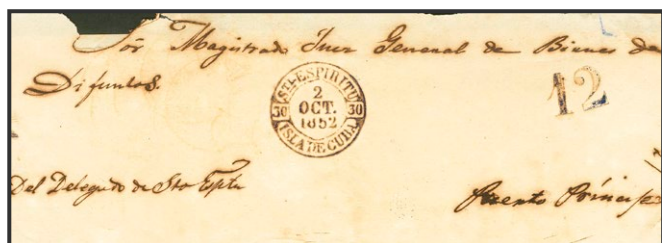 Sôr Magistrado Juez General de Bienes de
Difuntos.
STI-ESPIRITU
2
OCT.
1852
30 30
ISLA DE CUBA
12
Del Delegado de Sto Esptu
Puerto Príncipe